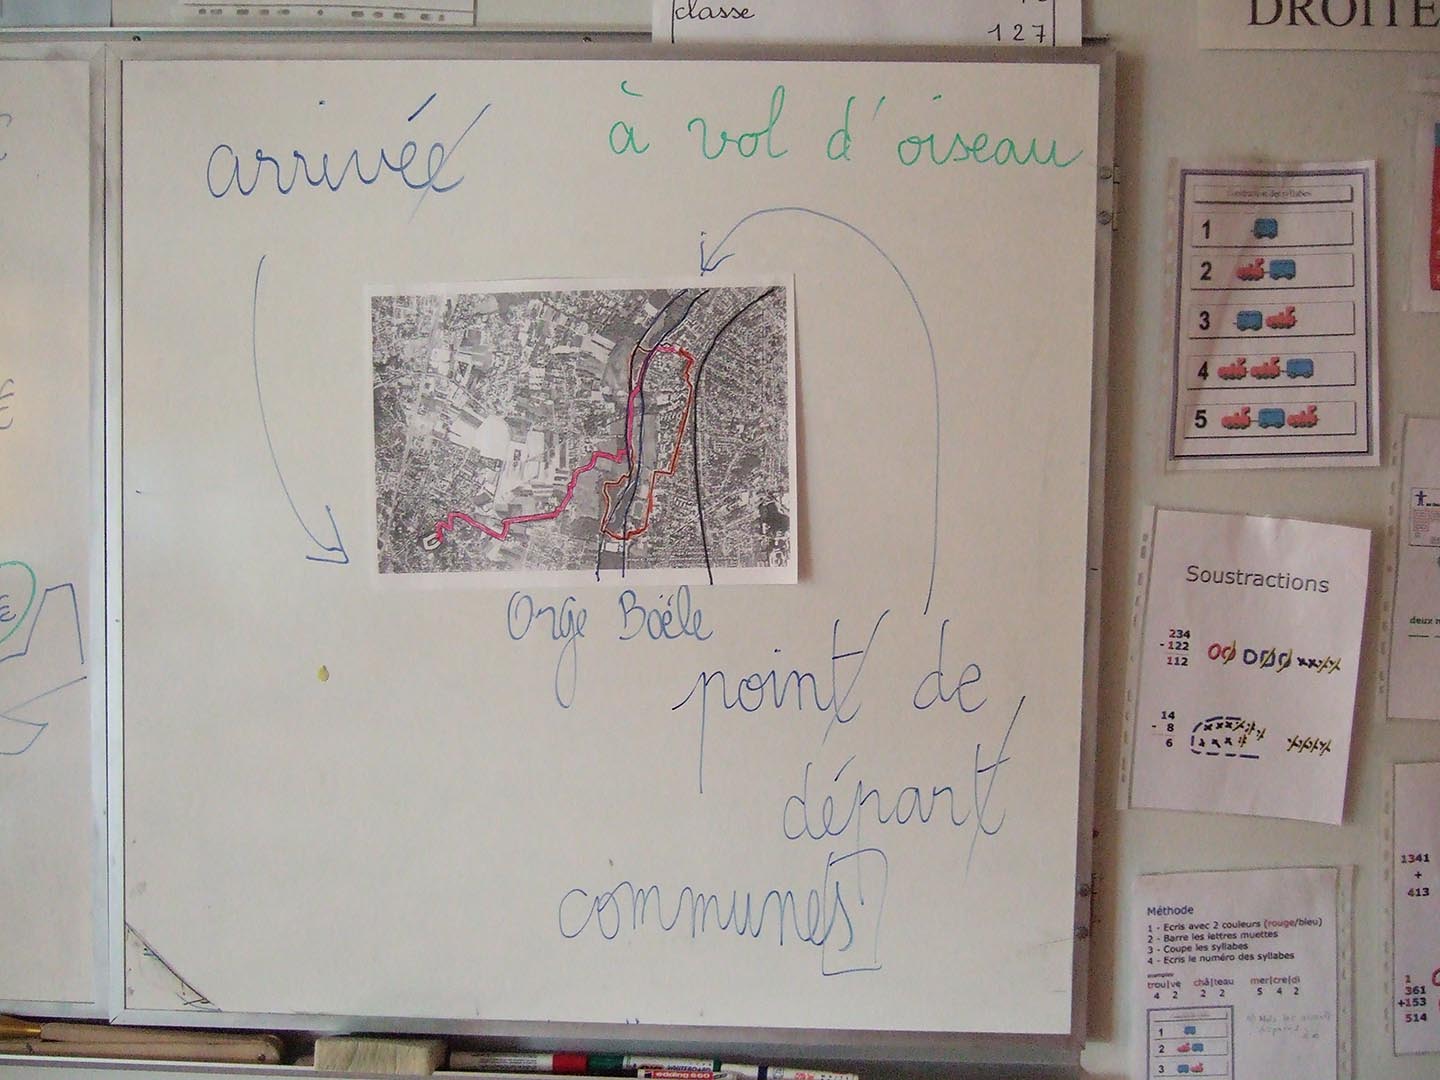 classe
127
DROITE
arrivée
à vol d'oiseau
Orge Boële
point de
départ
communes
Construction des syllabes
1
2
3
4
5
Soustractions
234
- 122
112
14
- 8
6
deux
Méthode
1 - Ecris avec 2 couleurs (rouge/bleu)
2 - Barre les lettres muettes
3 - Coupe les syllabes
4 - Ecris le numéro des syllabes
exemples
trou|ve châ|teau mer|cre|di
4 2 2 2 5 4 2
1
2
3
1341
+
413
1
361
+153
514